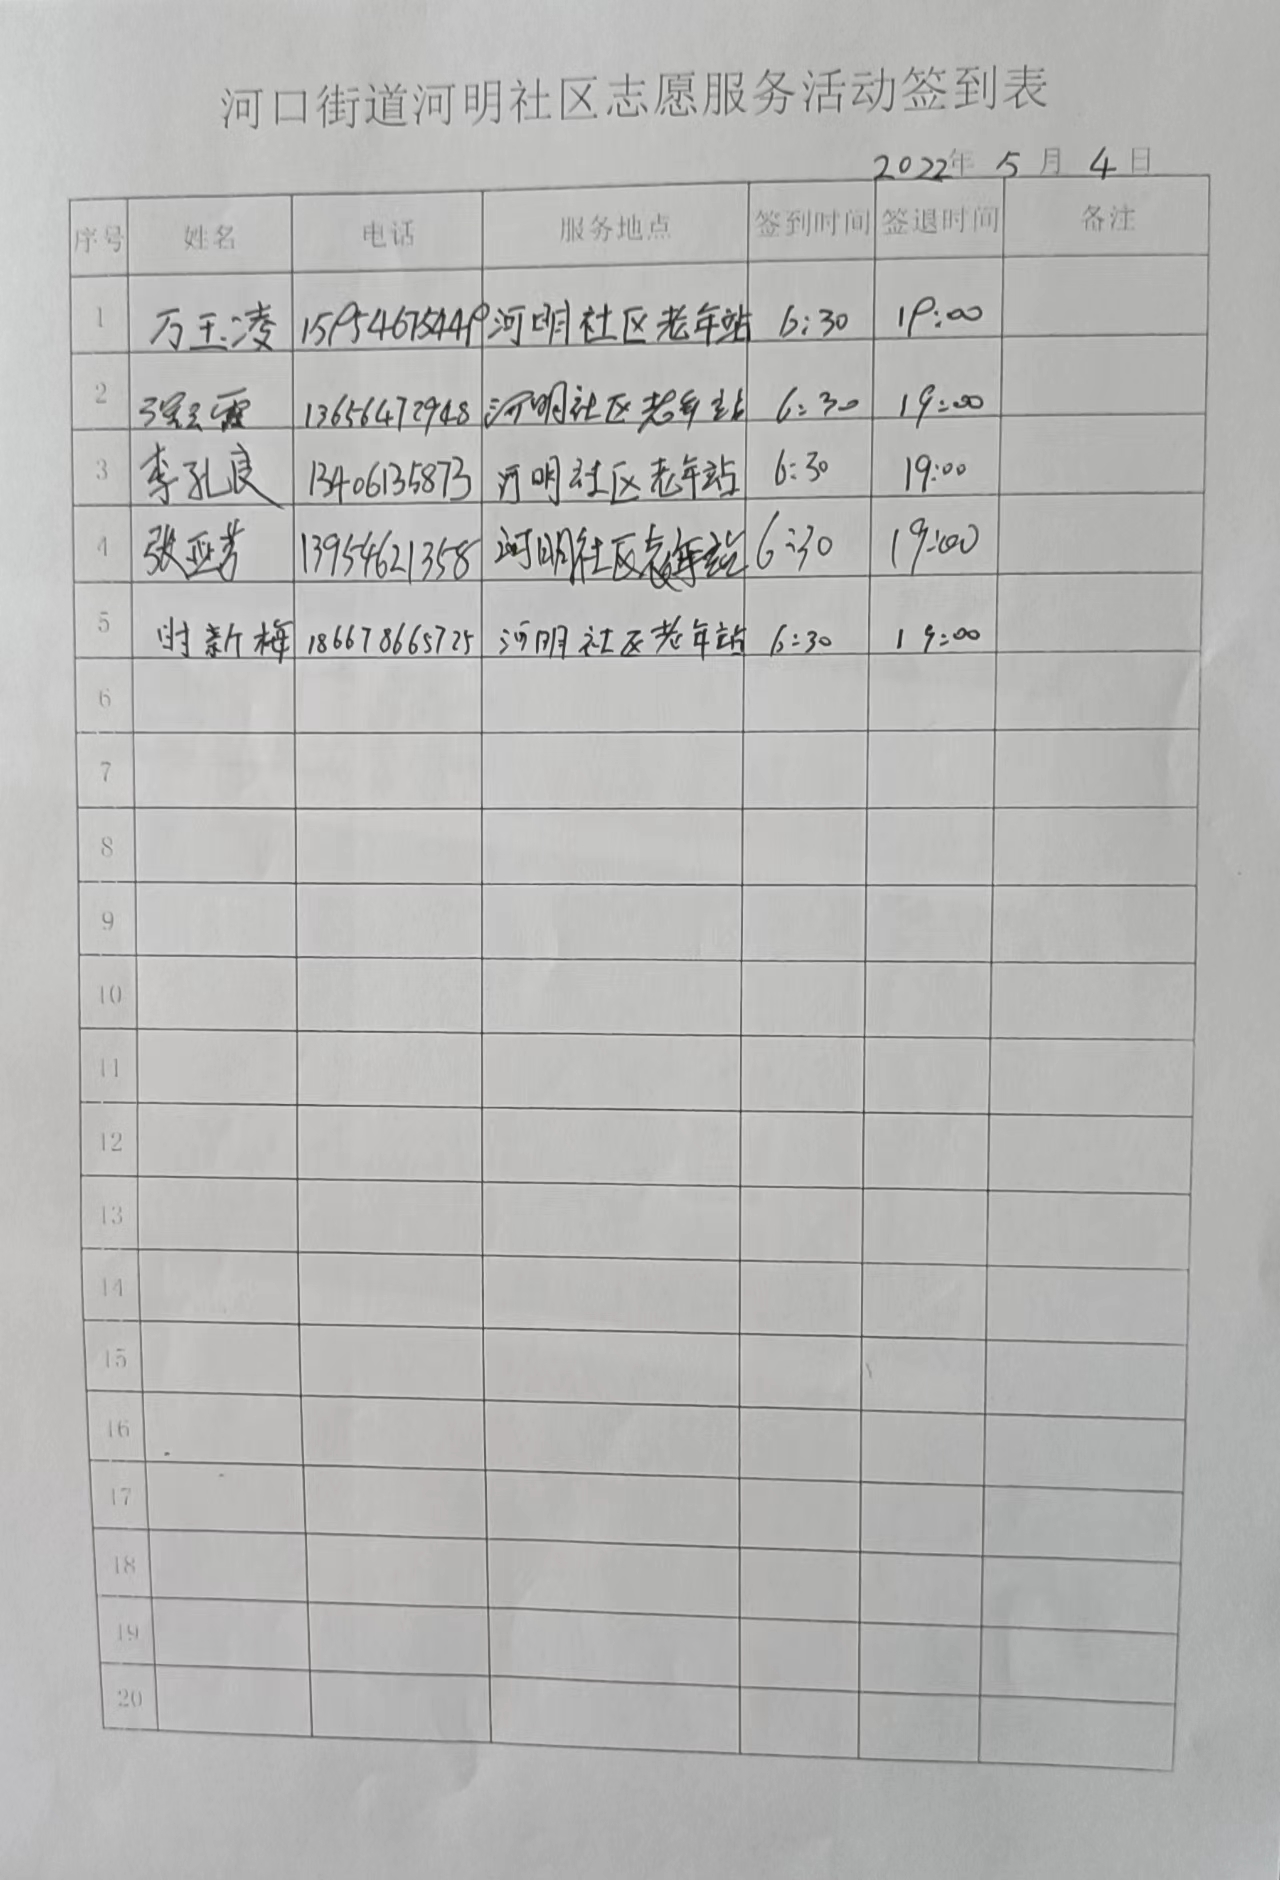 河口街道河明社区志愿服务活动签到表
2022年 5 月 4 日
序号 姓名 电话 服务地点 签到时间 签退时间 备注
1 万玉凌 15954675449 河明社区老年站 6:30 19:00
2 13656472948 河明社区老年站 6:30 19:00
3 李孔良 13406135873 河明社区老年站 6:30 19:00
4 张亚芳 13954621358 河明社区老年站 6:30 19:00
5 时新梅 186678665725 河明社区老年站 6:30 19:00
6
7
8
9
10
11
12
13
14
15
16
17
18
19
20